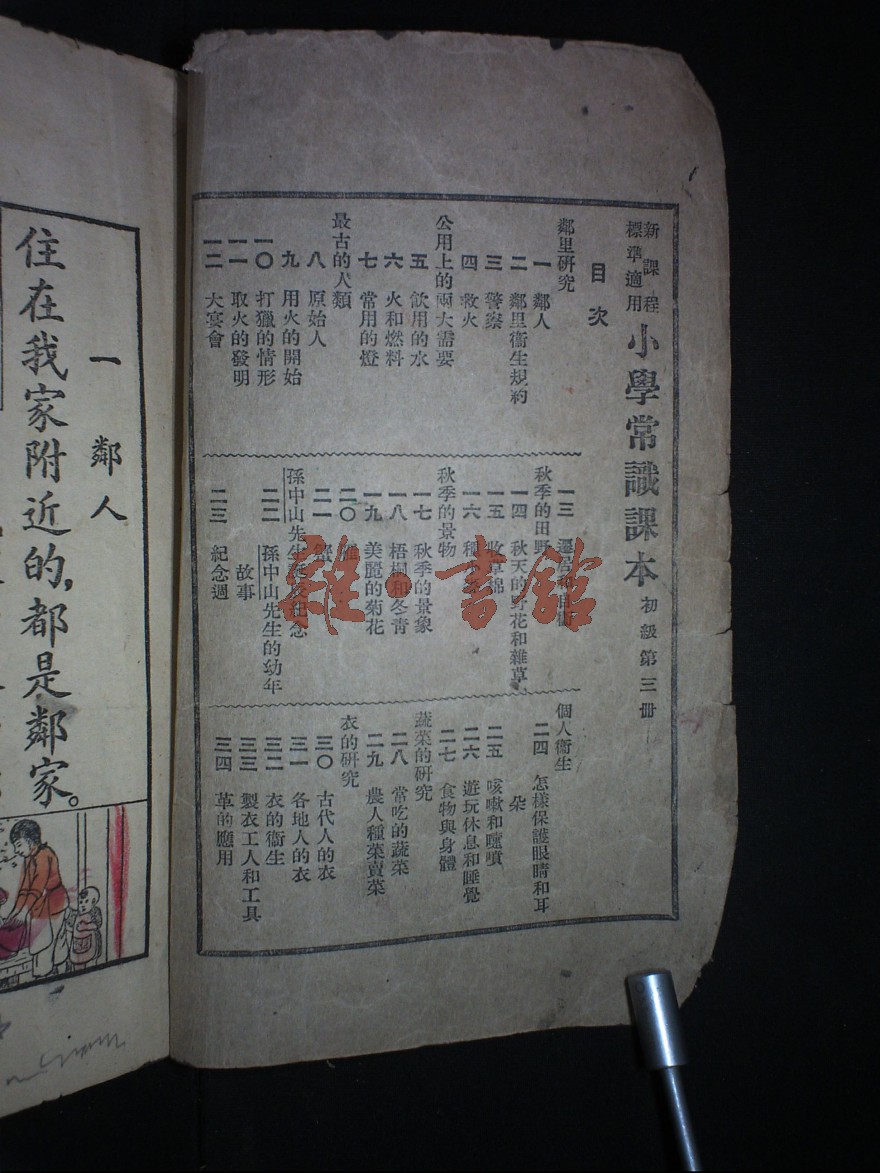 新課程
標準適用
小學常識課本 初級第三冊
目次
鄰里研究
一 鄰人
二 鄰里衞生規約
三 警察
四 救火
公用上的兩大需要
五 飲用的水
六 火和燃料
七 常用的燈
最古的人類
八 原始人
九 用火的開始
一〇 打獵的情形
一一 取火的發明
一二 大宴會
一三
秋季的田野
一四 秋天的野花和雜草
一五 收草綿
一六
秋季的景物
一七 秋季的景象
一八 梧桐和冬青
一九 美麗的菊花
二〇
二一 蟹
孫中山先生 紀念
二二 孫中山先生的幼年
故事
二三 紀念週
個人衞生
二四 怎樣保護眼睛和耳
朵
二五 咳嗽和嚏噴
二六 遊玩休息和睡覺
二七 食物與身體
蔬菜的研究
二八 常吃的蔬菜
二九 農人種菜賣菜
衣的研究
三〇 古代人的衣
三一 各地人的衣
三二 衣的衞生
三三 製衣工人和工具
三四 革的應用
一 鄰人
住在我家附近的，都是鄰家。
雜·書館